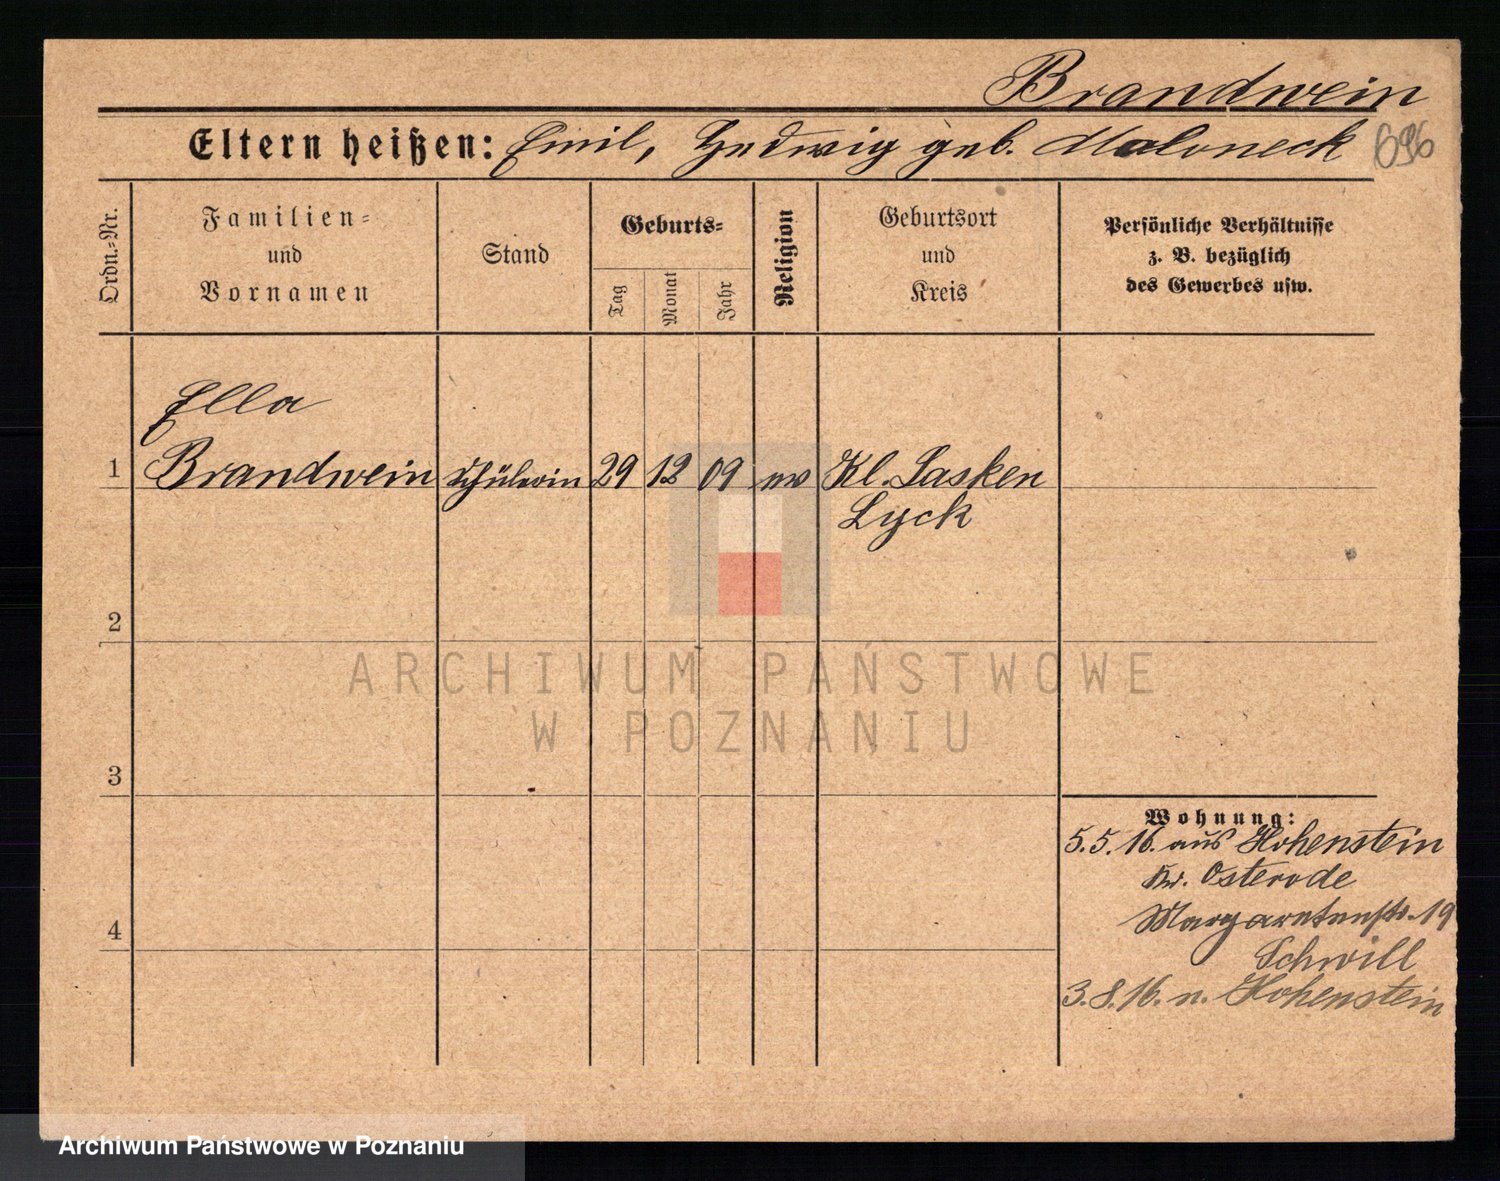 Brandwein
Eltern heißen: Emil, Hedwig geb. Maloneck
696
Ordn.=Nr.
Familien=
und
Vornamen
Stand
Geburts=
Tag
Monat
Jahr
Religion
Geburtsort
und
Kreis
Persönliche Verhältnisse
z. B. bezüglich
des Gewerbes usw.
Ella
1 Brandwein Schülerin 29 12 09 ev Kl. Lasken
Lyck
2
3
4
Wohnung:
5.5.16. aus Hohenstein
Kr. Osterode
Margaretenstr. 19
Schwill
3.8.16. n. Hohenstein
ARCHIWUM PAŃSTWOWE
W POZNANIU
Archiwum Państwowe w Poznaniu